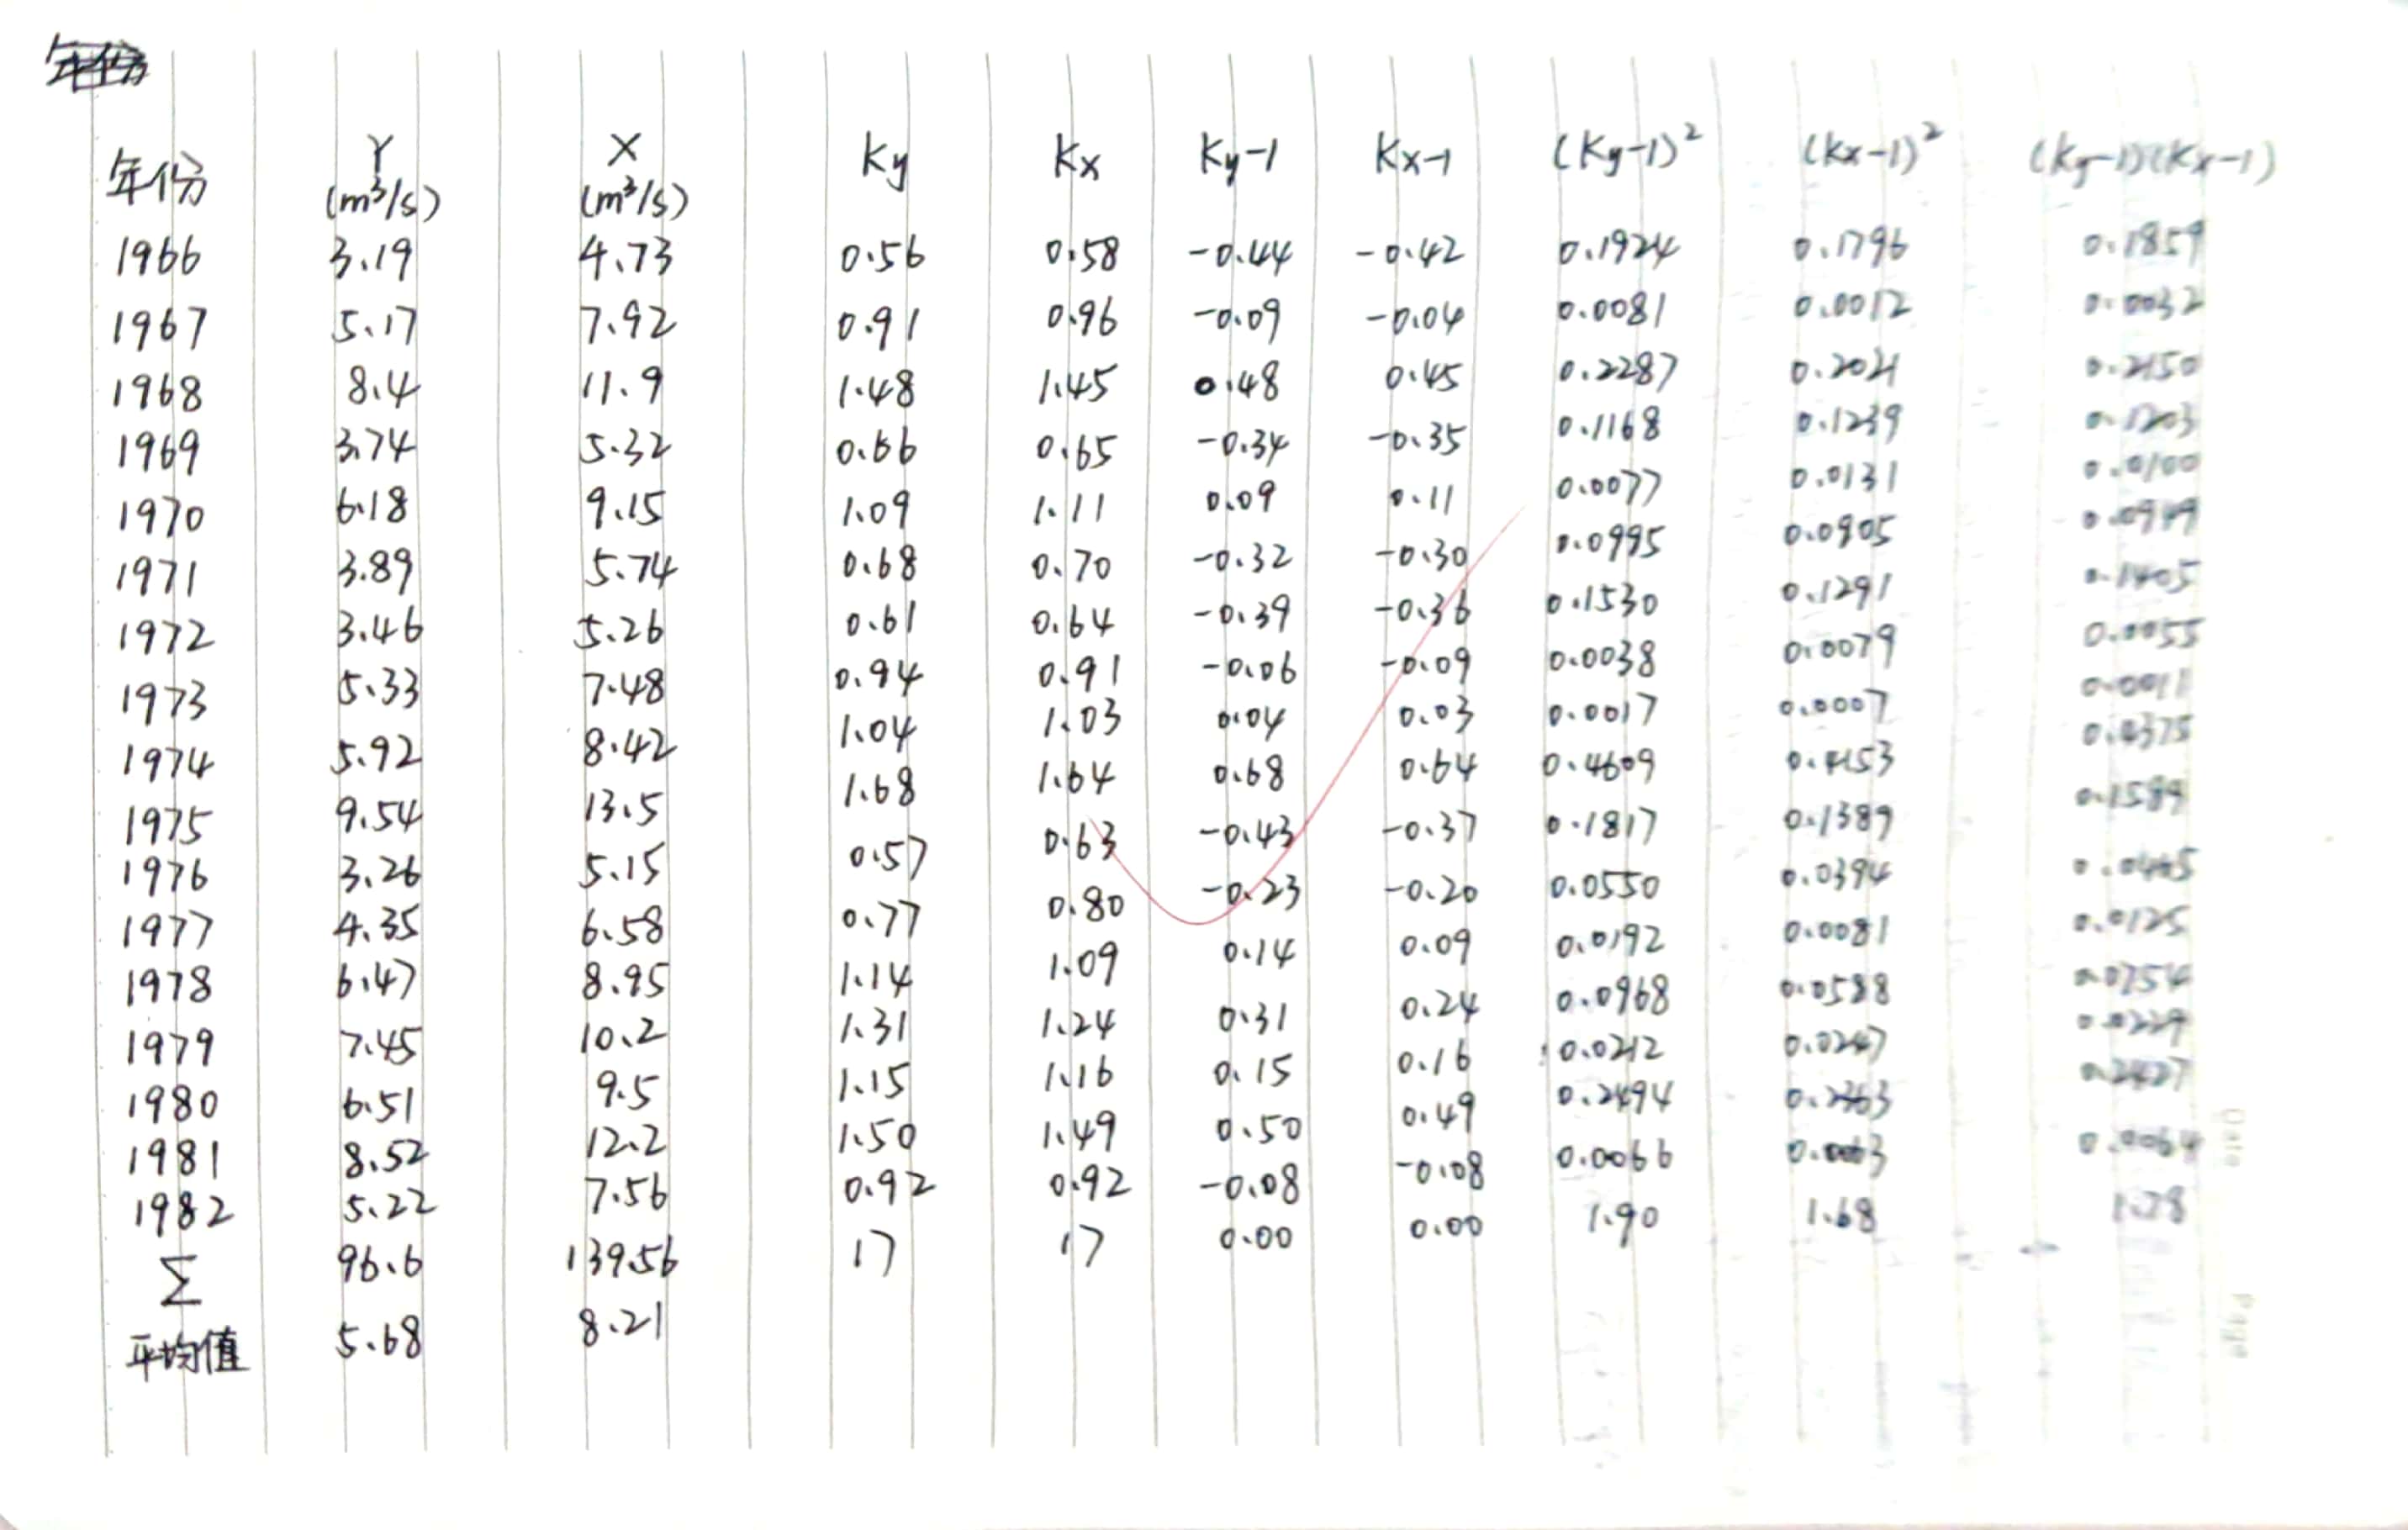 年份 Y X Ky Kx Ky-1 Kx-1 (Ky-1)² (Kx-1)² (Ky-1)(Kx-1)
(m³/s) (m³/s)
1966 3.19 4.73 0.56 0.58 -0.44 -0.42 0.1924 0.1796 0.1859
1967 5.17 7.92 0.91 0.96 -0.09 -0.04 0.0081 0.0012 0.0032
1968 8.4 11.9 1.48 1.45 0.48 0.45 0.2287 0.2021 0.2150
1969 3.74 5.32 0.66 0.65 -0.34 -0.35 0.1168 0.1239 0.1203
1970 6.18 9.15 1.09 1.11 0.09 0.11 0.0077 0.0131 0.0100
1971 3.89 5.74 0.68 0.70 -0.32 -0.30 0.0995 0.0905 0.0949
1972 3.46 5.26 0.61 0.64 -0.39 -0.36 0.1530 0.1291 0.1405
1973 5.33 7.48 0.94 0.91 -0.06 -0.09 0.0038 0.0079 0.0055
1974 5.92 8.42 1.04 1.03 0.04 0.03 0.0017 0.0007 0.0011
1975 9.54 13.5 1.68 1.64 0.68 0.64 0.4609 0.4153 0.4375
1976 3.26 5.15 0.57 0.63 -0.43 -0.37 0.1817 0.1389 0.1589
1977 4.35 6.58 0.77 0.80 -0.23 -0.20 0.0550 0.0394 0.0465
1978 6.47 8.95 1.14 1.09 0.14 0.09 0.0192 0.0081 0.0125
1979 7.45 10.2 1.31 1.24 0.31 0.24 0.0968 0.0588 0.0754
1980 6.51 9.5 1.15 1.16 0.15 0.16 0.0212 0.0247 0.0229
1981 8.52 12.2 1.50 1.49 0.50 0.49 0.2494 0.2363 0.2427
1982 5.22 7.56 0.92 0.92 -0.08 -0.08 0.0066 0.0063 0.0064
Σ 96.6 139.56 17 17 0.00 0.00 1.90 1.68 1.78
平均值 5.68 8.21
Date
Page